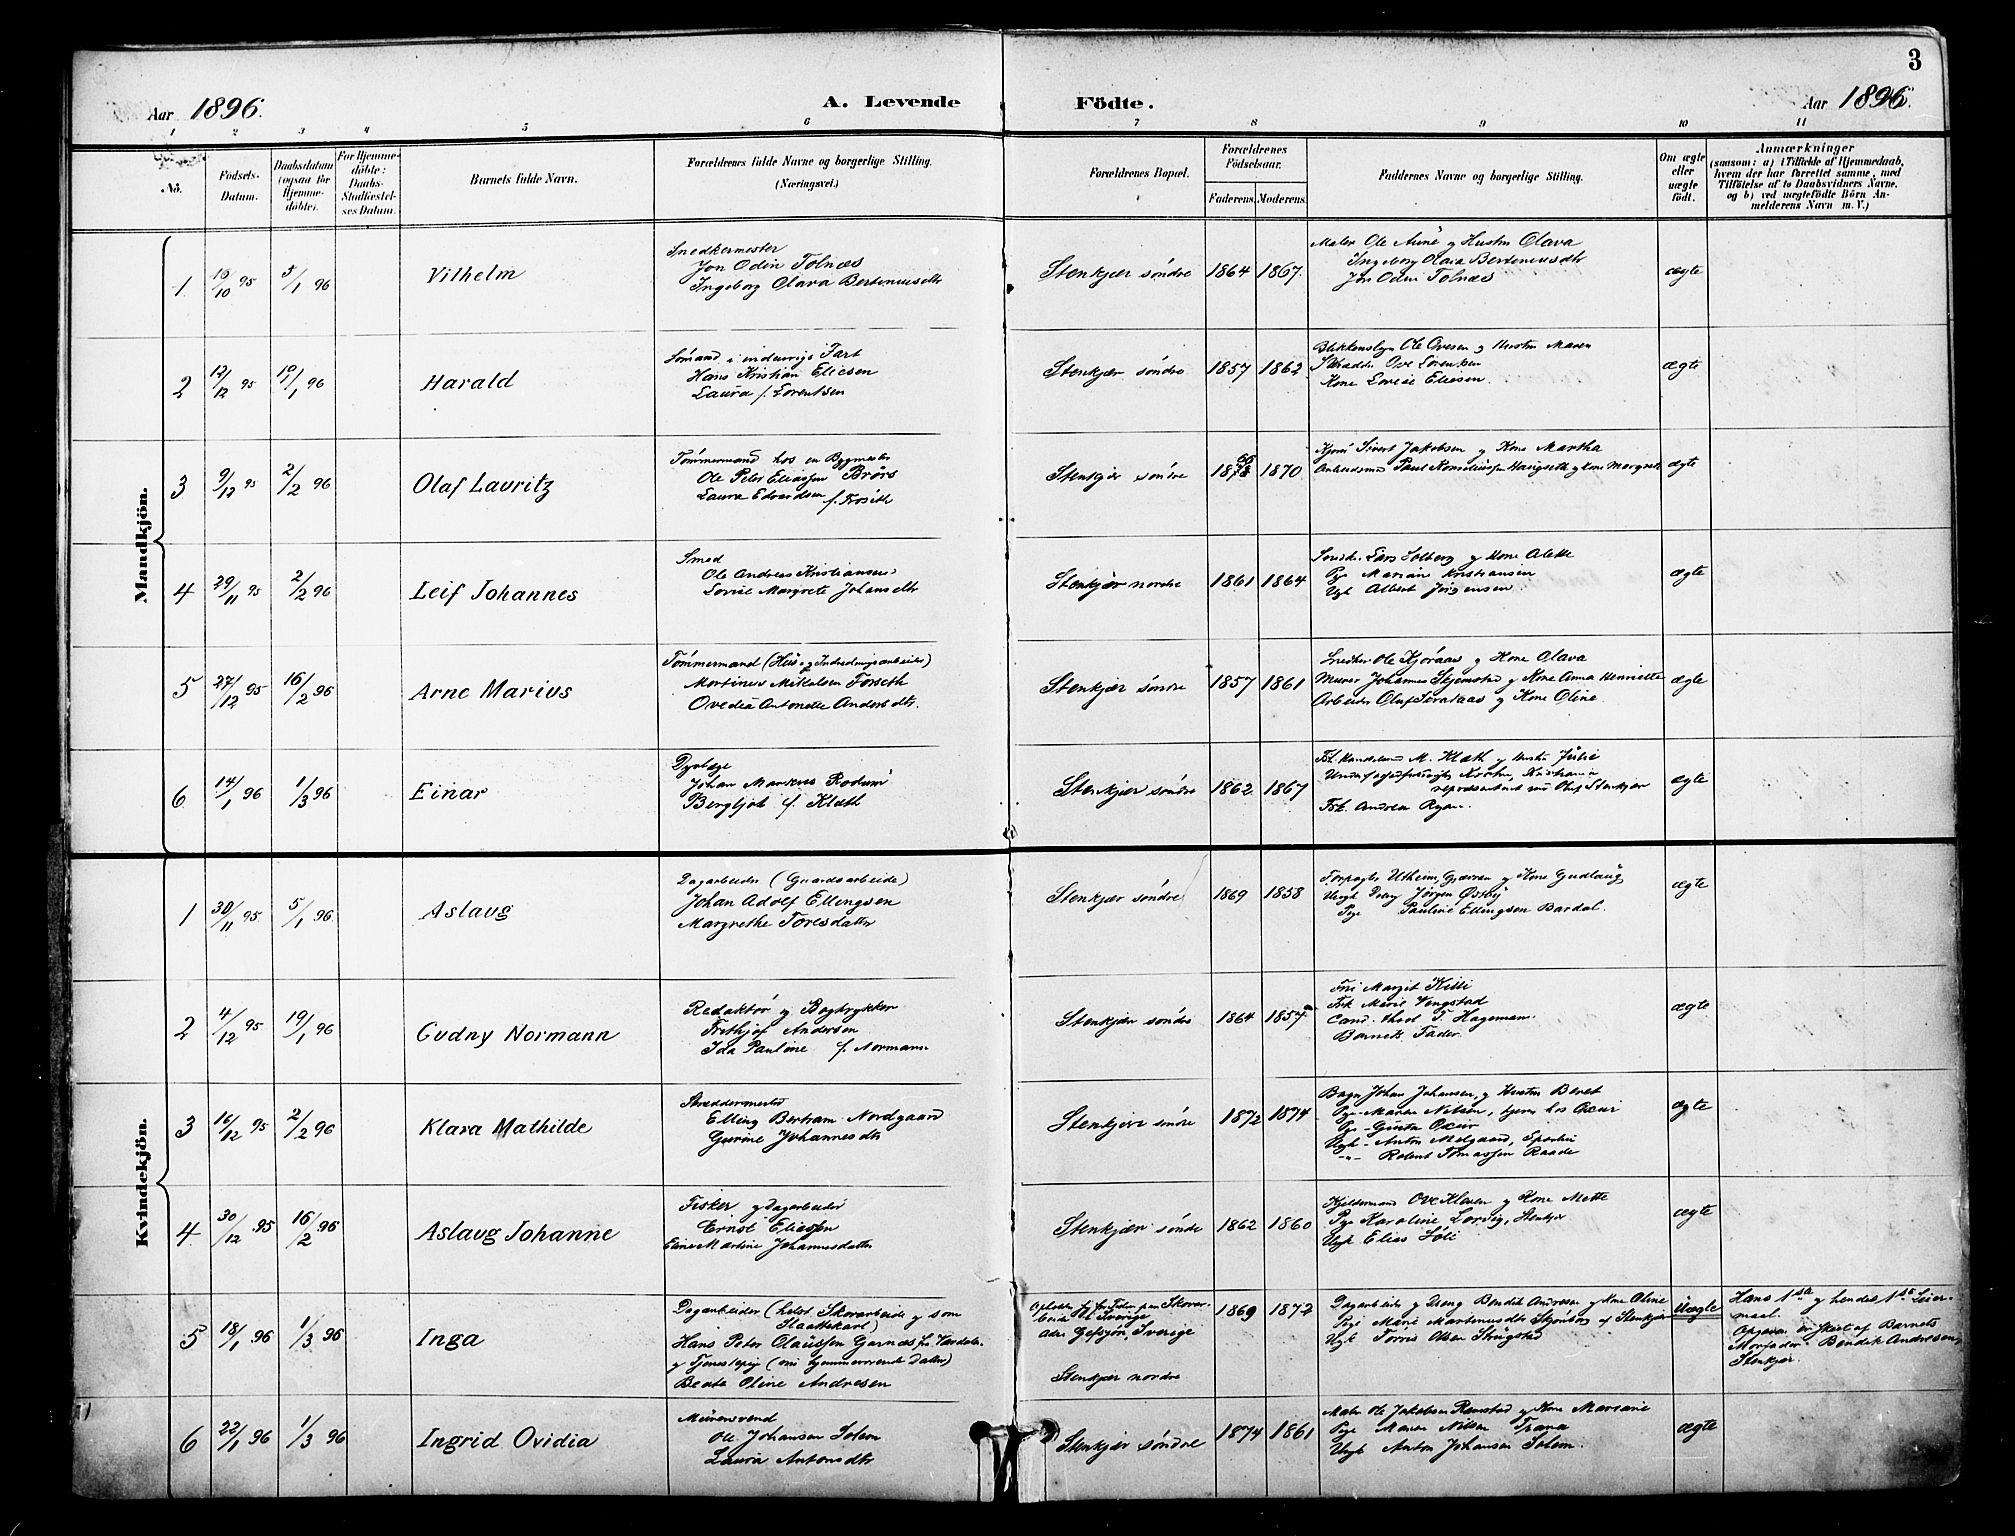 3
Aar 1896. A. Levende Fødte. Aar 1896.
1 2 3 4 5 6 7 8 9 10 11
No.
Fødsels-
Datum.
Daabsdatum
(ogsaa for
Hjemme-
døbte).
For Hjemme-
døbte:
Daabs-
Stadfæstel-
ses Datum.
Barnets fulde Navn.
Forældrenes fulde Navne og borgerlige Stilling.
(Næringsvei.)
Forældrenes Bopæl.
Forældrenes
Fødselsaar.
Faderens. Moderens.
Faddernes Navne og borgerlige Stilling.
Om ægte
eller
uægte
født.
Anmærkninger
(saasom: a) i Tilfælde af Hjemmedaab,
hvem der har forrettet samme, med
Tilføielse af to Daabsvidners Navne.
og b) ved uægtefødte Børn An-
melderens Navn m. V.)
Mandkjön.
1 16/10 95 5/1 96 Vilhelm
Snedkermester
Jon Odin Tolnæs
Ingeborg Olava Berteniusdtr
Stenkjær søndre 1864 1867.
Maler Ole Aune og Hustru Olava
Ingeborg Olava Berteniusdtr
Jon Odin Tolnæs
ægte
2 12/12 95 19/1 96 Harald
Sømand i indenrigs Fart
Hans Kristian Eliesen
Laura f. Lorentsen
Stenkjær søndre 1857 1862
Ole Ovesen og Hustru Maren
Ove Lorentsen
Kone Lovise Eliesen.
ægte
3 9/12 95 2/2 96 Olaf Lauritz
Tømmermand hos en Bygmester
Ole Peter Eliassen Brørs
Laura Edvardsen f. Froseth
Stenkjær søndre 1870
Sivert Jakobsen og Kone Martha
Paul Kornelius og Kone Margrete
ægte
4 29/11 95 2/2 96 Leif Johannes
Smed
Ole Andreas Kristiansen
Lovise Margrete Johansdtr
Stenkjær nordre 1861 1864
Lars Solberg og Kone Alette
Pige Marian Kristiansen
Ugk Albert Jørgensen.
ægte
5 27/12 95 16/2 96 Arne Marius
Tømmermand (Hus og Indredningsarbeider)
Mortinus Mikalsen Forseth
Ovedia Antonette Andersdtr.
Stenkjær søndre 1857 1861
Snedker Ole Kjøraas og Kone Olava
Murer Johannes Skjemstad og Kone Anna Henriette
Arbeider Oluf og Kone Oline.
ægte
6 14/1 96 1/3 96 Einar
Dyrlæge
Johan Mardenis Rodum
Bergljot f. Klæth
Stenkjær søndre 1862. 1867
M. Klæth og Hustru Julie
Kristiania
repræsenteret ved Oluf Stenkjær
Frk. Andrea Ryan.
ægte
Kvindekjön.
1 30/11 95 5/1 96 Aslaug
Dagarbeider (Gaardsarbeide)
Johan Adolf Ellingsen
Margrethe Toresdatter
Stenkjær søndre 1869 1858
Forpagter Utheim, og Kone Gudlaug
Ugk Jørgen Østby
Pige Pauline Ellingsen Bardal.
ægte
2 4/12 95 19/1 96 Gudny Normann
Redaktør og Bogtrykker
Frithjof Andersen
Ida Pauline f. Normann
Stenkjær søndre 1864 1857
Margit Kitti
Frk Marie Vengstad
Cand. theol T. Hageman
Barnets Fader.
ægte
3 16/12 95 2/2 96 Klara Mathilde
Skreddermester
Elling Bertram Nordgaard
Gurine Johannesdtr
Stenkjær søndre 1872 1874
Johan Johansen og Hustru Beret
Pige Maren Nilsen, tjener hos
Pige Gusta
Ugk Anton Melgaard,
-"- Robert Tomassen Raade
ægte
4 30/12 95 16/2 96 Aslaug Johanne
Fisker og Dagarbeider
Ernst Eliessen
Eline Martine Johannesdatter
Stenkjær søndre 1862 1860
Ove Klausen og Kone Mette
Pige Karoline Lorvig, Stenkjær
Ugk Elias Soli
ægte
5 18/1 96 1/3 96 Inga
Dagarbeider (helst Skovarbeide og som
Slaattekarl)
Hans Peter Olaussen Garnæs fra Værdalen
og Tjenestepige (nu hjemmeværende Datter)
Beate Oline Andresen
Sverige
Gefsjøn, Sverige
Stenkjær nordre
1869 1872
Dagarbeider og Bendik Andresen og Kone Oline
Pige Marie Martenusdtr af Stenkjær
Ugk Torris Olsen
Uægte
Hans 1ste og hendes 1ste Leier-
maal.
Opgaven er sket af Barnets
Morfader Bendik Andresen,
Stenkjær.
6 22/1 96 1/3 96 Ingrid Ovidia
Murersvend
Ole Johansen Solem
Laura Antonsdtr
Stenkjær søndre 1874 1861
Maler Ole Jakobsen og Kone Mariane
Pige Maren Nilsen Trana
Ugk Anton Johansen Solem.
ægte